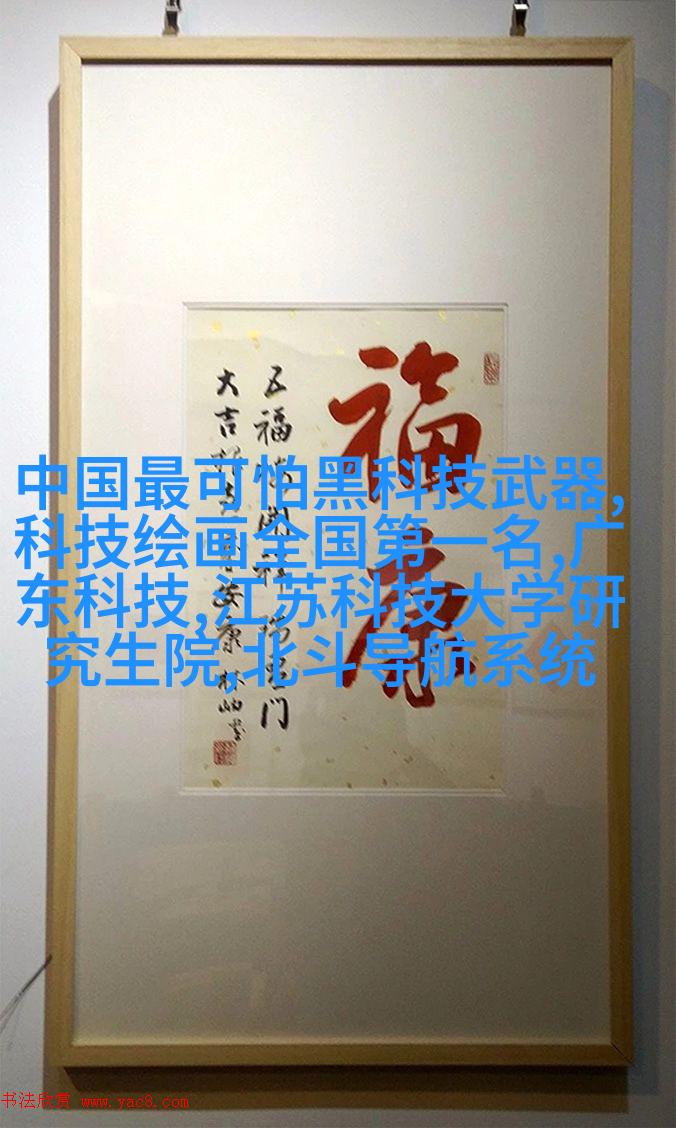 中国最可怕黑科技武器,
科技绘画全国第一名,广
东科技,江苏科技大学研
究生院,北斗导航系统
福康
五福 瑞盈门
大吉 安康 林岫书
书法欣赏 www.yac8.com